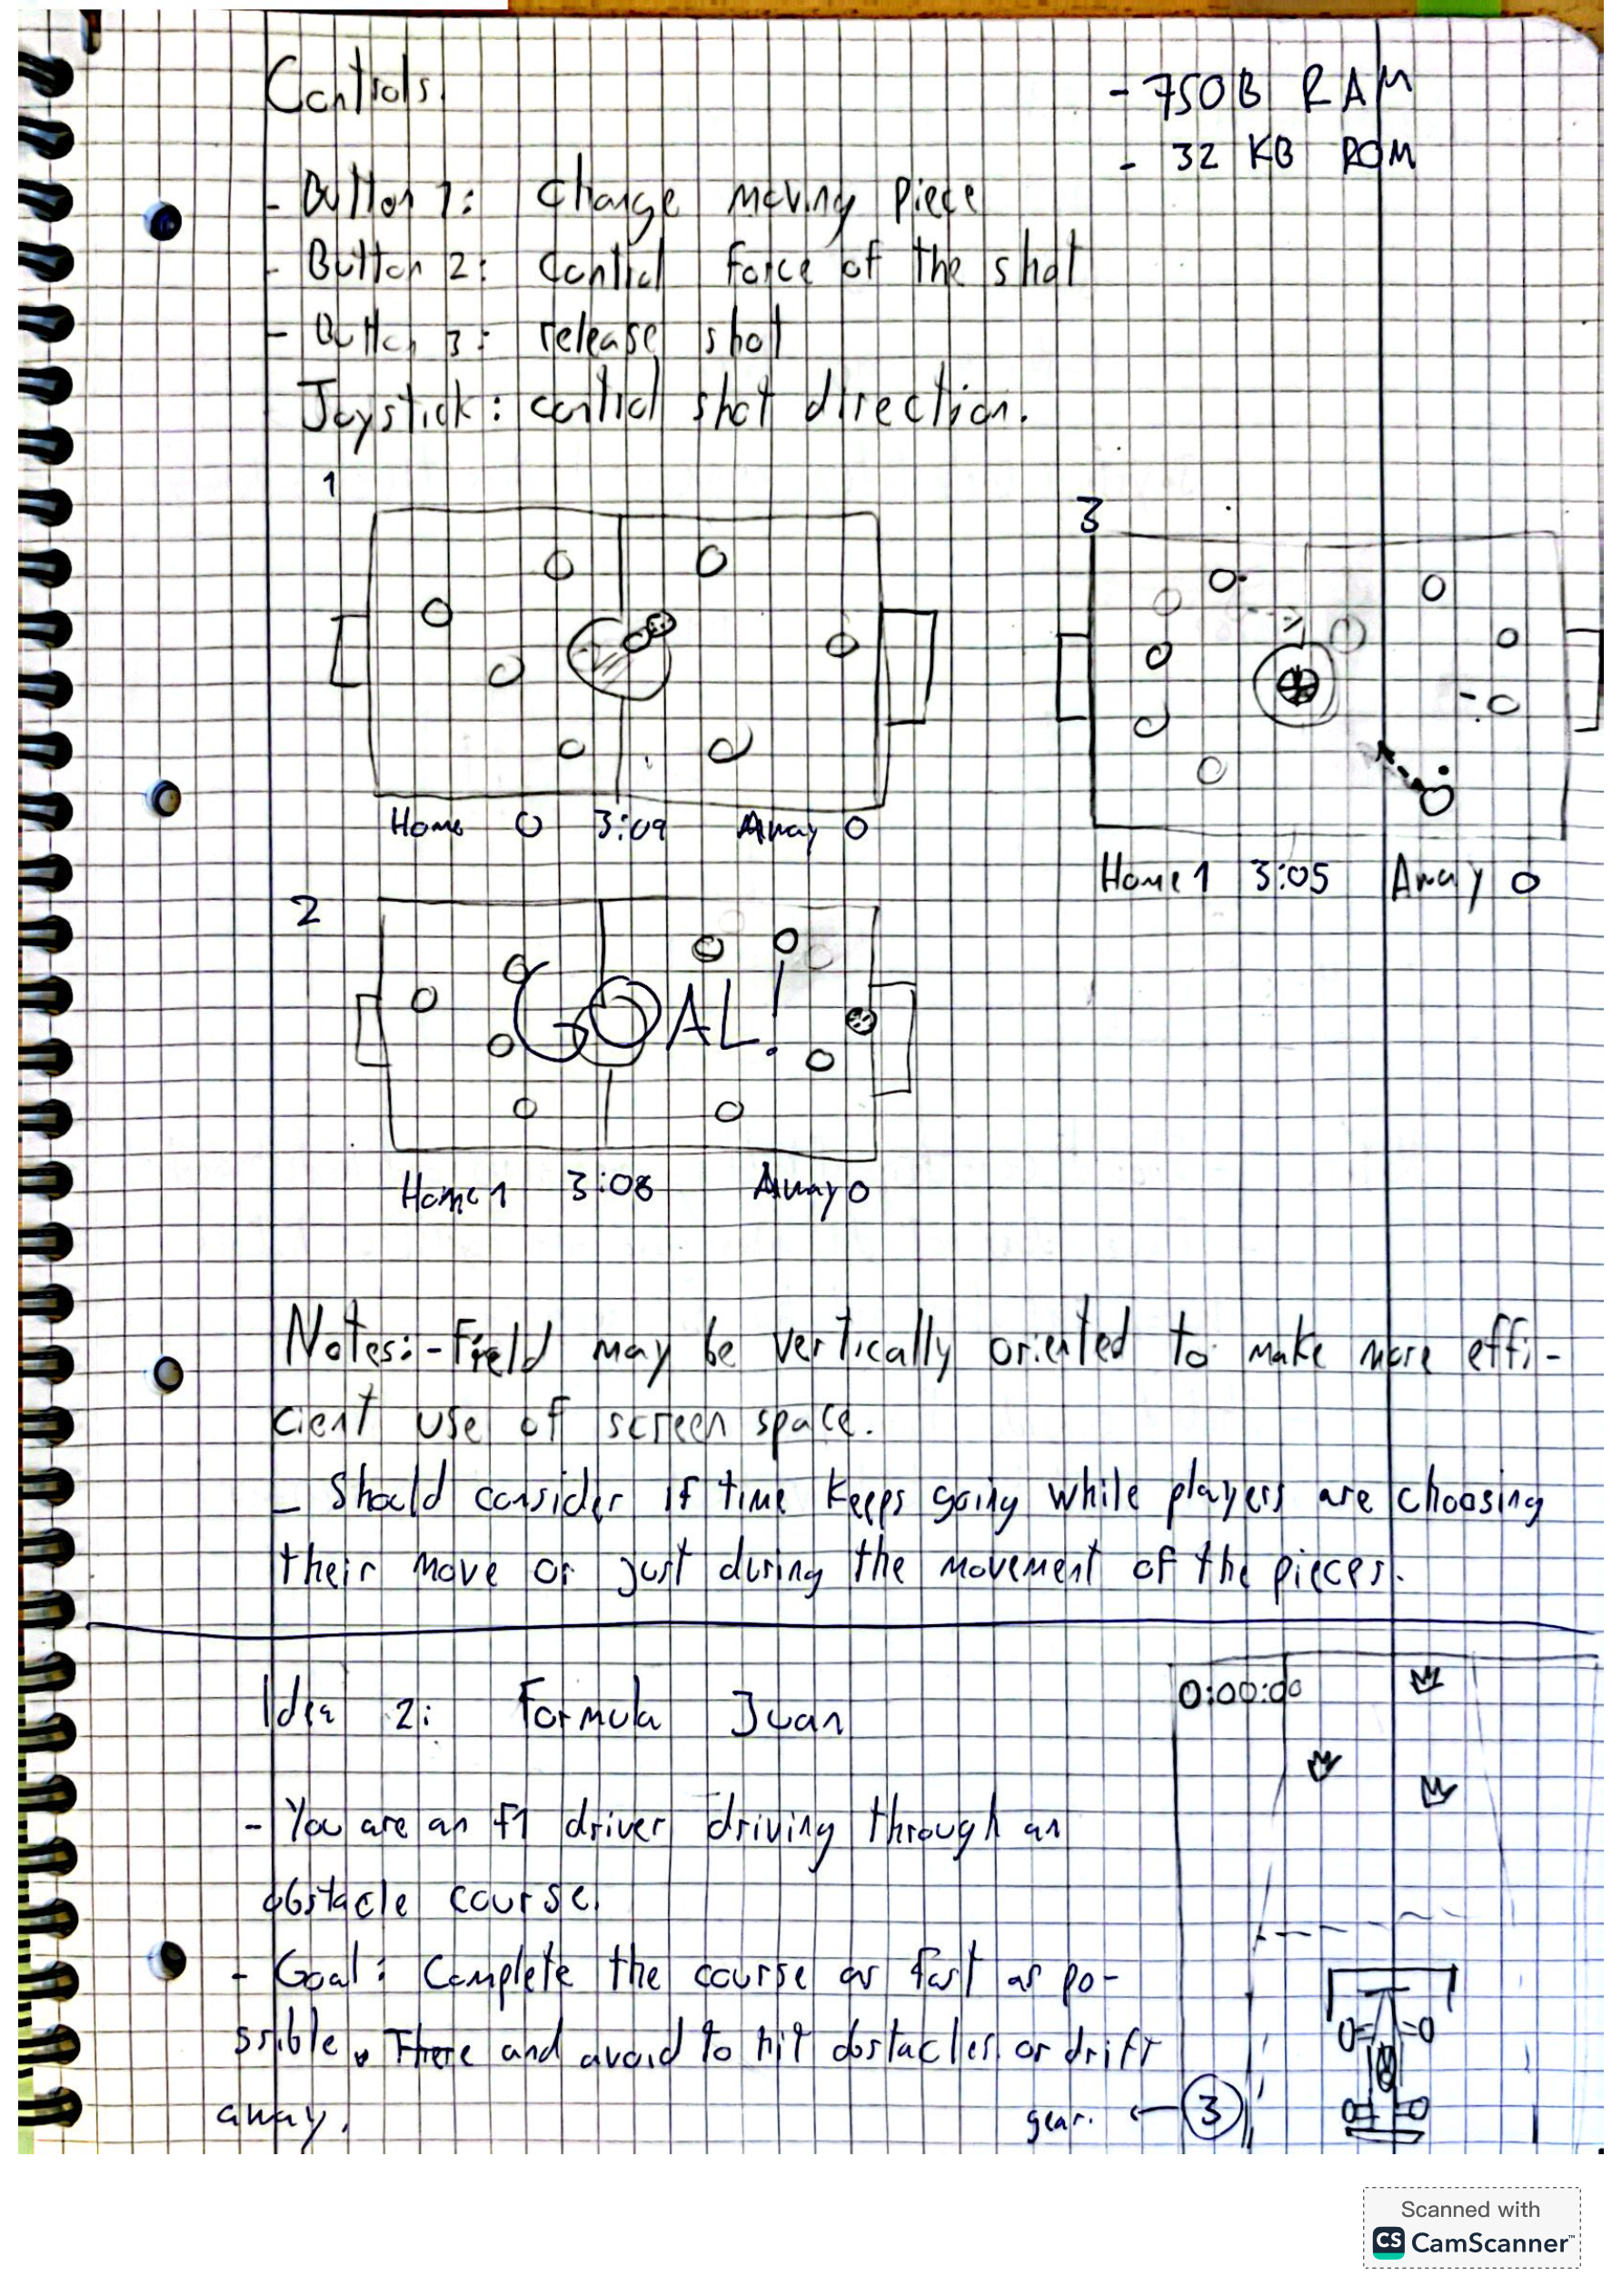 Controls.
- 750B RAM
- 32 KB ROM
- Button 1: change moving piece
- Button 2: control force of the shot
- Button 3: release shot
Joystick: control shot direction.
1
3
Home 0 3:09 Away 0
Home 1 3:05 Away 0
2
GOAL!
Home 1 3:08 Away 0
Notes: - Field may be vertically oriented to make more effi-
cient use of screen space.
- Should consider if time keeps going while players are choosing
their move or just during the movement of the pieces.
Idea 2: Formula Juan
0:00:00
- You are an F1 driver driving through an
obstacle course.
- Goal: Complete the course as fast as po-
ssible. There and avoid to hit obstacles or drift
away.
gear. ← 3
Scanned with
CS CamScanner™